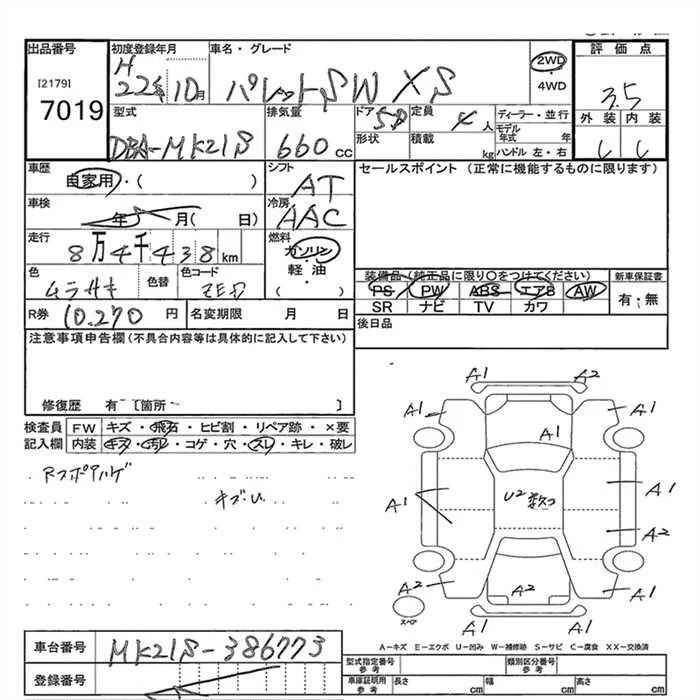 出品番号 初度登録年月 車名・グレード 評価点
[2179] H 22年 10月 パレットSW XS 2WD
・4WD 3.5
7019 型式 排気量 ドア 5D 定員 4人 ディーラー・並行 外装 内装
DBA-MK21S 660cc 形状 積載 kg モデル年式 年 ハンドル 左・右 C C
車歴 自家用・( ) シフト AT セールスポイント (正常に機能するものに限ります)
車検 年 月( 日) 冷房 AAC
走行 8万4千438km 燃料 ガソリン・軽・油 ( )
色 ムラサキ 色替 色コード ZED 装備品(純正品に限り〇をつけてください) 新車保証書
PS PW ABS エアB AW 有・無
SR ナビ TV カワ
R券 10.270円 名変期限 月 日 後日品
注意事項申告欄(不具合内容等は具体的に記入して下さい)
修復歴 有・[箇所 ]
検査員記入欄 FW キズ・飛石・ヒビ割・リペア跡・×要
内装 キズ・汚れ・コゲ・穴・スレ・キレ・破レ
キズ.U
A1 A2
A1 A1
A1
A1 U2 数コ A1
A2
A2 A2 A1
スペア A1 A1
A-キズ E-エクボ U-凹み W-補修跡 S-サビ C-腐食 XX-交換済
車台番号 MK21S-386773
型式指定番号 参考 類別区分番号 参考
登録番号 車庫証明用 参考 長さ cm 幅 cm 高さ cm